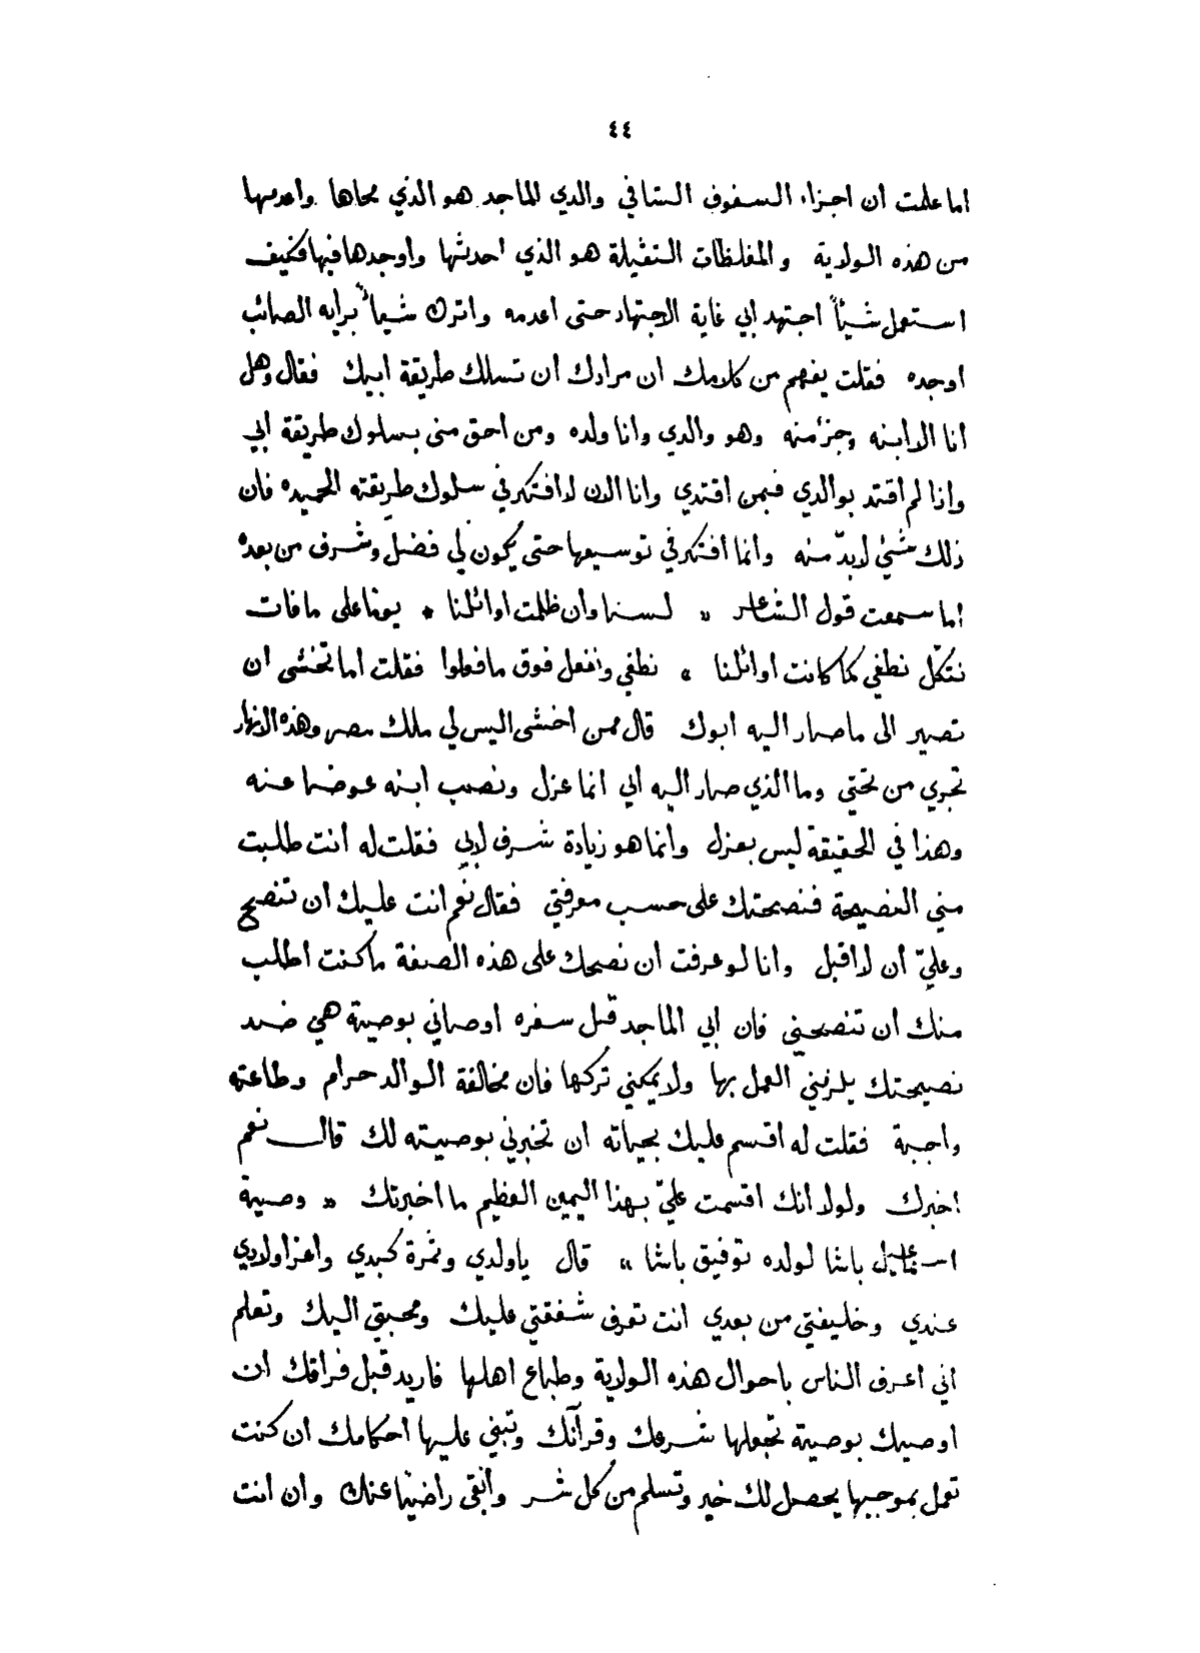 ٤٤
اما علمت ان اجزاء السفوف الشافي والدي الماجد هو الذي محاها واعدمها
من هذه الولاية والمغلظات الثقيلة هو الذي احدثها واوجدها فيها فكيف
استعمل شيئاً اجتهد ابي غاية الاجتهاد حتى اعدمه واترك شيئاً برايه الصائب
اوجده فقلت يفهم من كلامك ان مرادك ان تسلك طريقة ابيك فقال وهل
انا الا ابنه وجزء منه وهو والدي وانا ولده ومن احق مني بسلوك طريقة ابي
واذا لم اقتد بوالدي فبمن اقتدي وانا الان لا افتكر في سلوك طريقته الحميده فان
ذلك شئ لا بدّ منه وانما افتكر في توسيعها حتى يكون لي فضل وشرف من بعده
اما سمعت قول الشاعر » لسنا وان ظلمت اوائلنا * يوما على ما فات
نتكل نطغي كما كانت اوائلنا » نطغي ونفعل فوق ما فعلوا فقلت اما تخشى ان
تصير الى ما صار اليه ابوك قال ممن اخشى اليس لي ملك مصر وهذه الانهار
تجري من تحتي وما الذي صار اليه ابي انما عزل ونصب ابنه عوضا عنه
وهذا في الحقيقة ليس بعزل وانما هو زيادة شرف لابي فقلت له انت طلبت
مني النصيحة فنصحتك على حسب معرفتي فقال نعم انت عليك ان تنصح
وعليّ ان لا اقبل وانا لو عرفت ان نصحك على هذه الصفة ما كنت اطلب
منك ان تنصحني فان ابي الماجد قبل سفره اوصاني بوصية هي ضد
نصيحتك يلزمني العمل بها ولا يمكني تركها فان مخالفة الوالد حرام وطاعته
واجبة فقلت له اقسم عليك بحياته ان تخبرني بوصيته لك قال نعم
اخبرك ولولا انك اقسمت عليّ بهذا اليمين العظيم ما اخبرتك » وصية
اسماعيل باشا لولده توفيق باشا » قال ياولدي وثمرة كبدي واعز اولادي
عندي وخليفتي من بعدي انت تعرف شفقتي عليك ومحبتي اليك وتعلم
اني اعرف الناس باحوال هذه الولاية وطباع اهلها فاريد قبل فراقك ان
اوصيك بوصية تجعلها شرعك وقرآنك وتبني عليها احكامك ان كنت
تعمل بموجبها يحصل لك خير وتسلم من كل شر وأبقى راضيا عنك وان انت